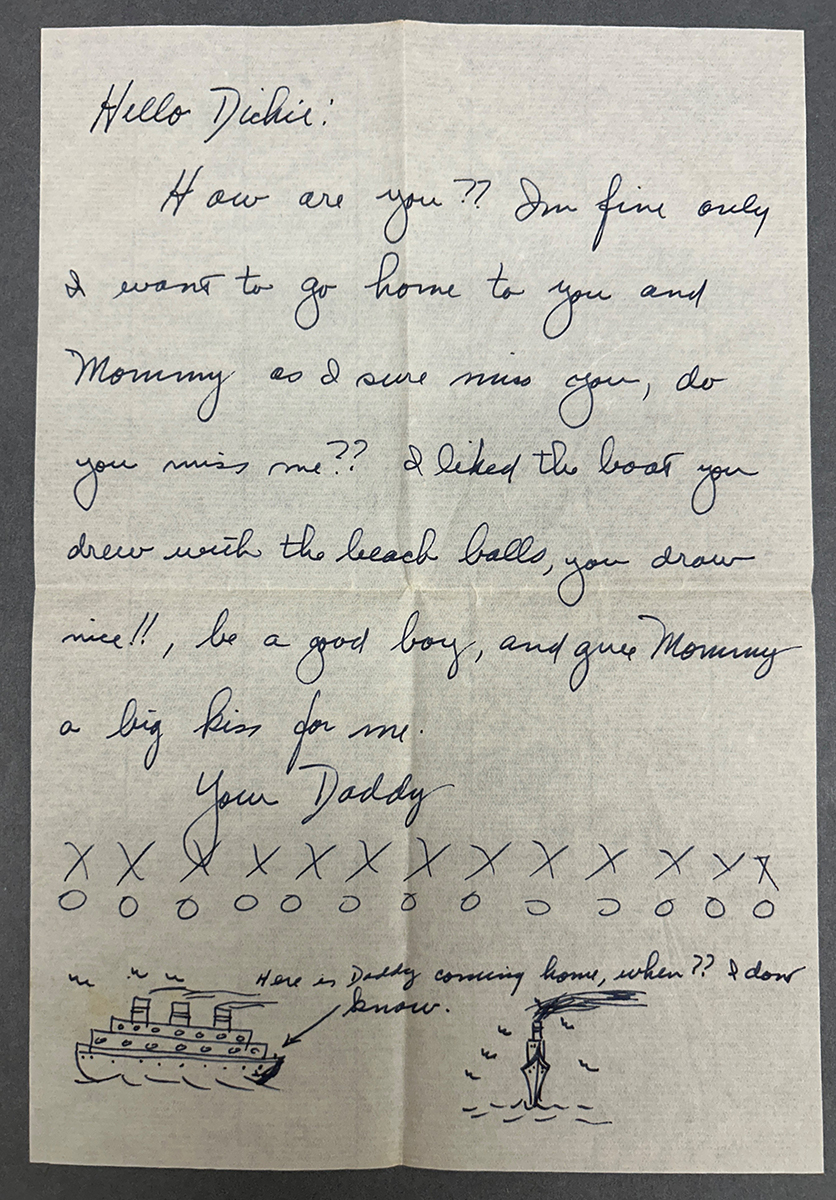 Hello Dickie:
How are you?? Im fine only
I want to go home to you and
Mommy as I sure miss you, do
you miss me?? I liked the boat you
drew with the beach balls, you draw
nice!!, be a good boy, and give Mommy
a big kiss for me.
Your Daddy
X X X X X X X X X X X X X
O O O O O O O O O O O O O
Here is Daddy coming home, when?? I dont
know.